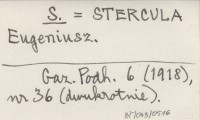 S. = STERCULA
Eugeniusz.
Gaz. Podh. 6 (1918),
nr 36 (dwukrotnie).
BT/049/0516